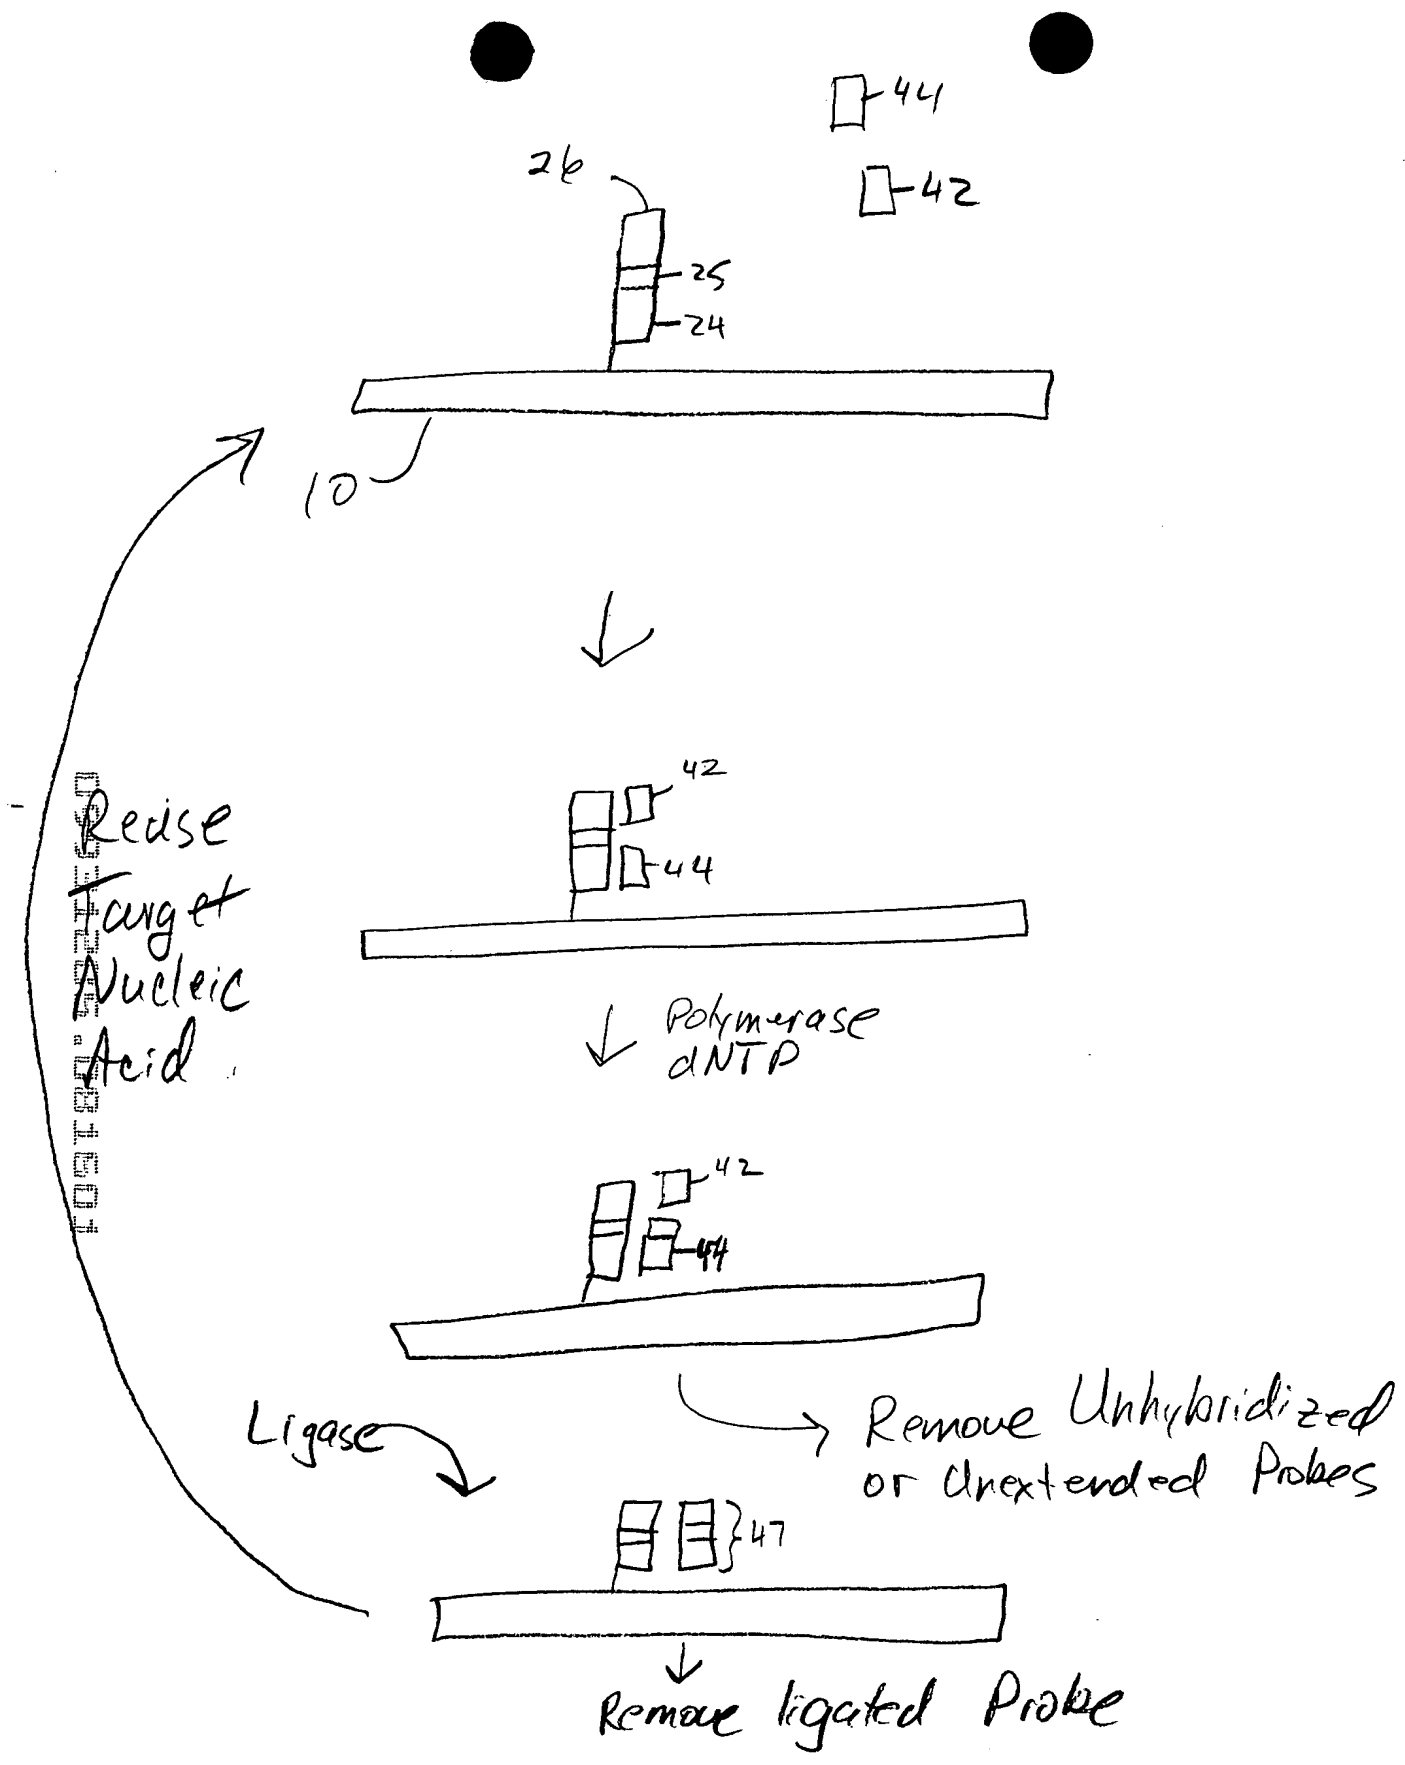 44
42
26
25
24
10
42
44
Reuse
Target
Nucleic
Acid.
Polymerase
dNTP
42
44
Ligase
Remove Unhybridized
or Unextended Probes
47
Remove ligated Probe